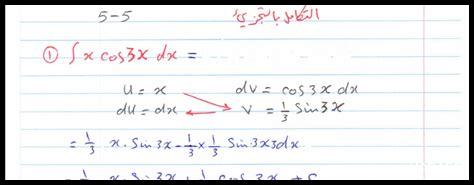 5-5 التكامل بالتجزيئ
① ∫ x cos3x dx =
u = x dv = cos3x dx
du = dx v = 1/3 sin3x
= 1/3 x · sin 3x - 1/3 × 1/3 sin 3x 3dx